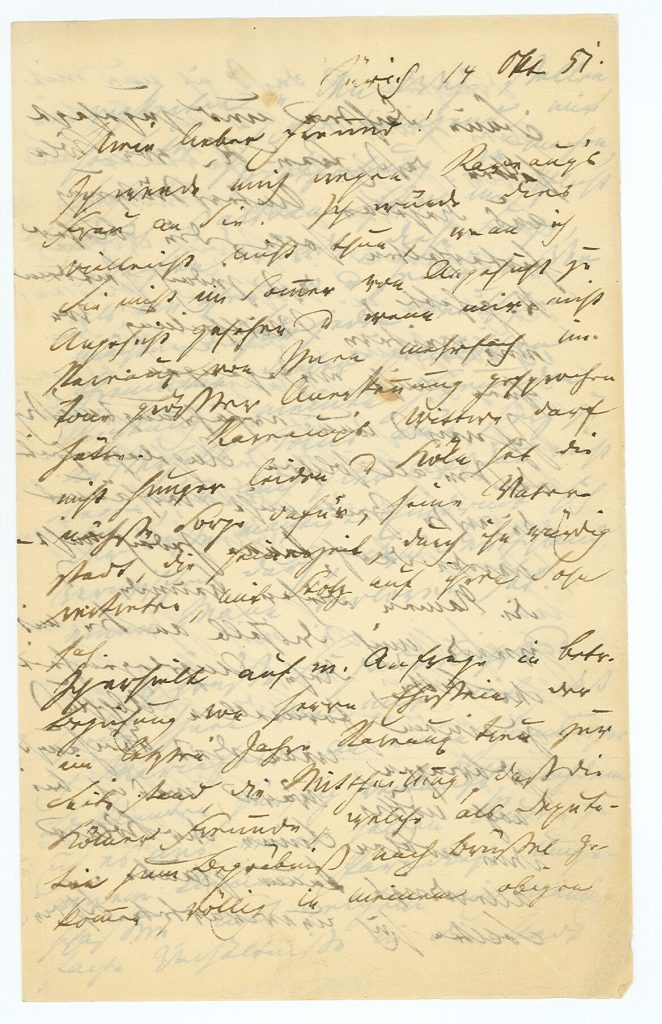 Zürich 14 Okt 51.
Mein lieber Freund!
Ich wende mich wegen Raveaux's
Frau an Sie. Ich würde dies
vielleicht nicht thun, wenn ich
Sie nicht im Sommer von Angesicht zu
Angesicht gesehen & wenn mir nicht
Raveaux von Ihnen mehrfach im
Tone größter Anerkennung gesprochen
hätte. Raveaux's Wittwe darf
nicht Hunger leiden & Köln hat die
nächste Sorge dafür, seine Vater-
stadt, die seinerzeit, durch ihn würdig
vertreten, mit Stolz auf ihren Sohn
sah.
Ich erhielt auf m. Anfrage in betr.
Beziehung von Herrn der
im letzten Jahre Raveaux treu zur
Seite stand, die Mittheilung, daß die
Kölner Freunde welche als Deputa-
tion zum Begräbniß nach Brüssel ge-
kommen völlig in meinem obigen